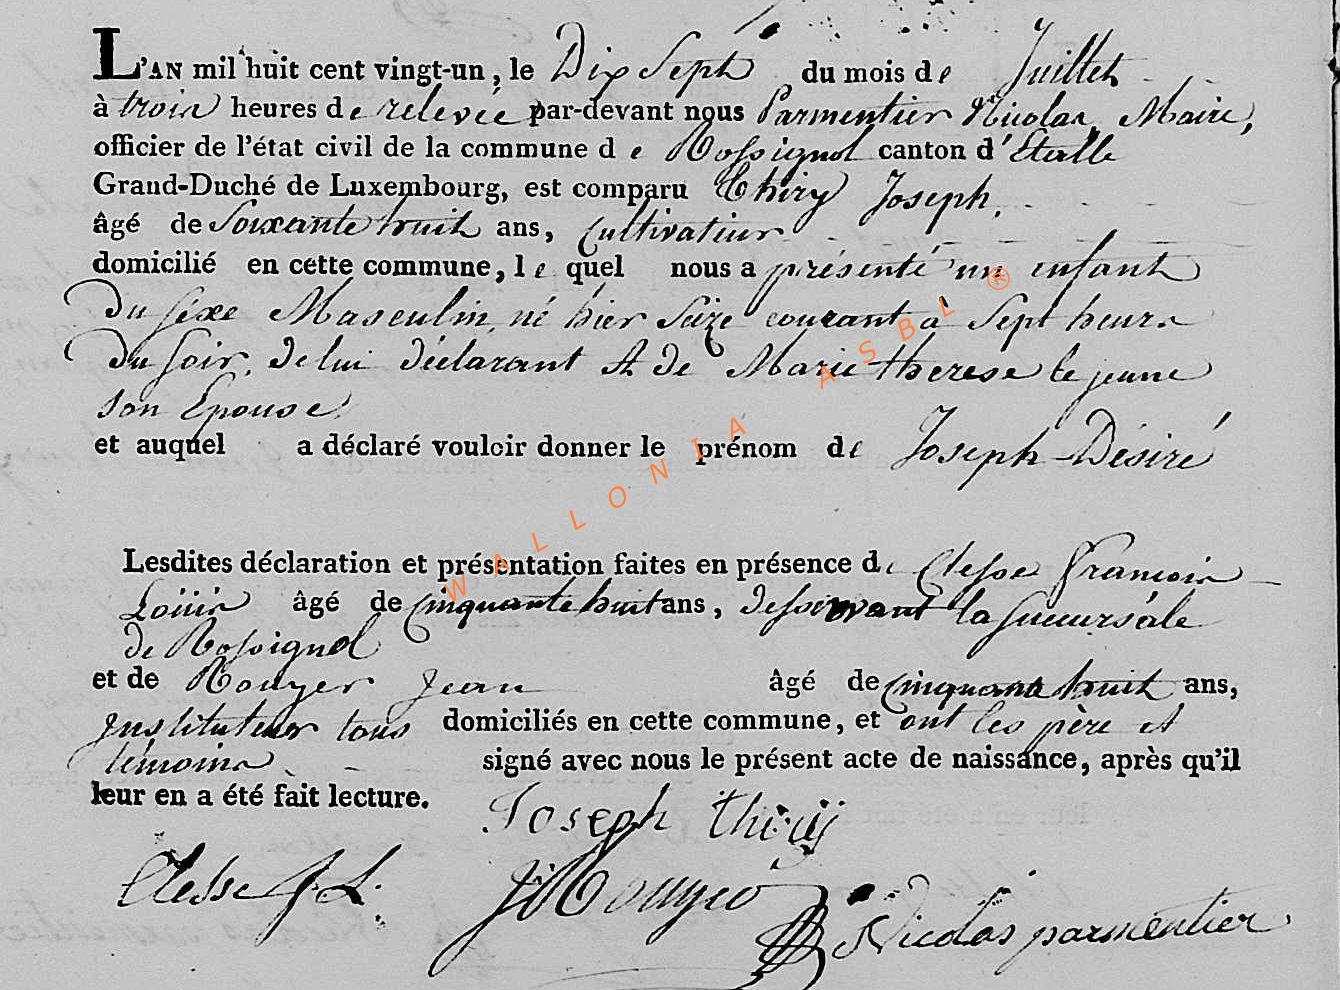 L'AN mil huit cent vingt-un, le Dix Sept du mois de Juillet
à trois heures de relevée par-devant nous Parmentier Nicolas, Maire,
officier de l'état civil de la commune de Rossignol canton d'Etalle
Grand-Duché de Luxembourg, est comparu Thiry Joseph,
âgé de Soixante huit ans, Cultivateur
domicilié en cette commune, lequel nous a présenté un enfant
Du sexe Masculin, né hier Seize courant à Sept heures
Du soir, de lui déclarant et de Marie therese le jeune
son Epouse
et auquel a déclaré vouloir donner le prénom de Joseph-Désiré
Lesdites déclaration et présentation faites en présence de Clesse Francois
Loüis âgé de cinquante huit ans, desservant la succursale
de Rossignol
et de Rouyer Jean âgé de cinquante huit ans,
Instituteur tous domiciliés en cette commune, et ont les père et
témoins signé avec nous le présent acte de naissance, après qu'il
leur en a été fait lecture.
Joseph thirÿ
Clesse f. L. J: Rouyer Nicolas parmentier
WALLONIA ASBL ®